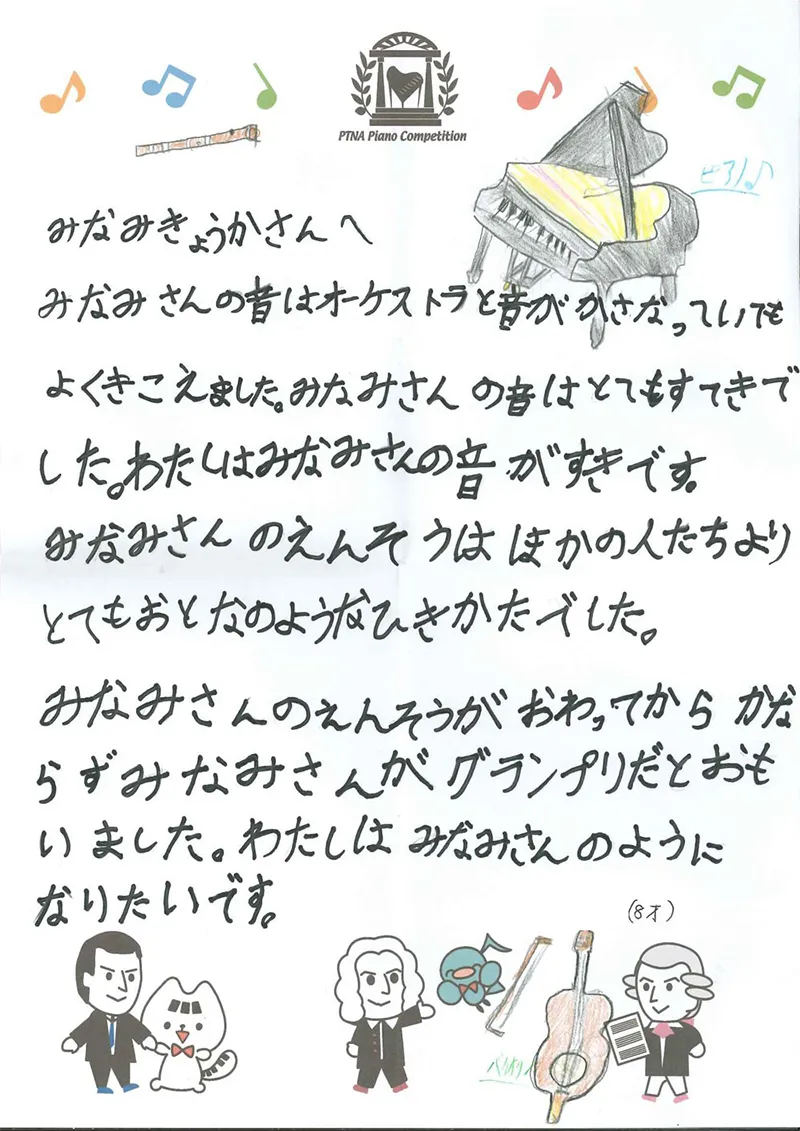 PTNA Piano Competition
ピアノ♪
みなみきょうかさんへ
みなみさんの音はオーケストラと音がかさなっていても
よくきこえました。みなみさんの音はとてもすてきで
した。わたしはみなみさんの音がすきです。
みなみさんのえんそうはほかの人たちより
とてもおとなのようなひきかたでした。
みなみさんのえんそうがおわってからかな
らずみなみさんがグランプリだとおも
いました。わたしはみなみさんのように
なりたいです。
(8才)
バイオリン